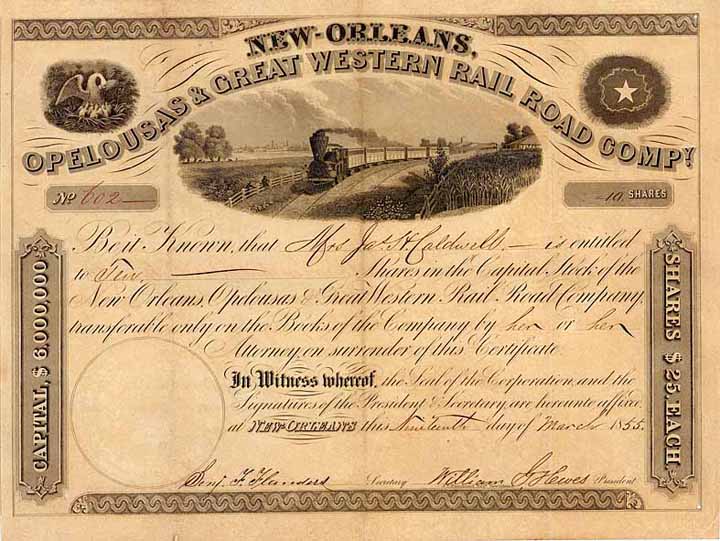 NEW-ORLEANS,
OPELOUSAS & GREAT WESTERN RAIL ROAD COMPY.
No. 602
10 SHARES
Be it Known, that Mrs Jas. H Caldwell is entitled
to Ten Shares in the Capital Stock of the
New Orleans, Opelousas & Great Western Rail Road Company,
transferable only on the Books of the Company by her or her
Attorney, on surrender of this Certificate
In Witness whereof, the Seal of the Corporation, and the
Signatures of the President & Secretary, are hereunto affixed
at NEW-ORLEANS this Nineteenth day of March 1855.
Benj. F. Flanders Secretary William J Hewes President
CAPITAL, $6,000,000
SHARES $25, EACH.